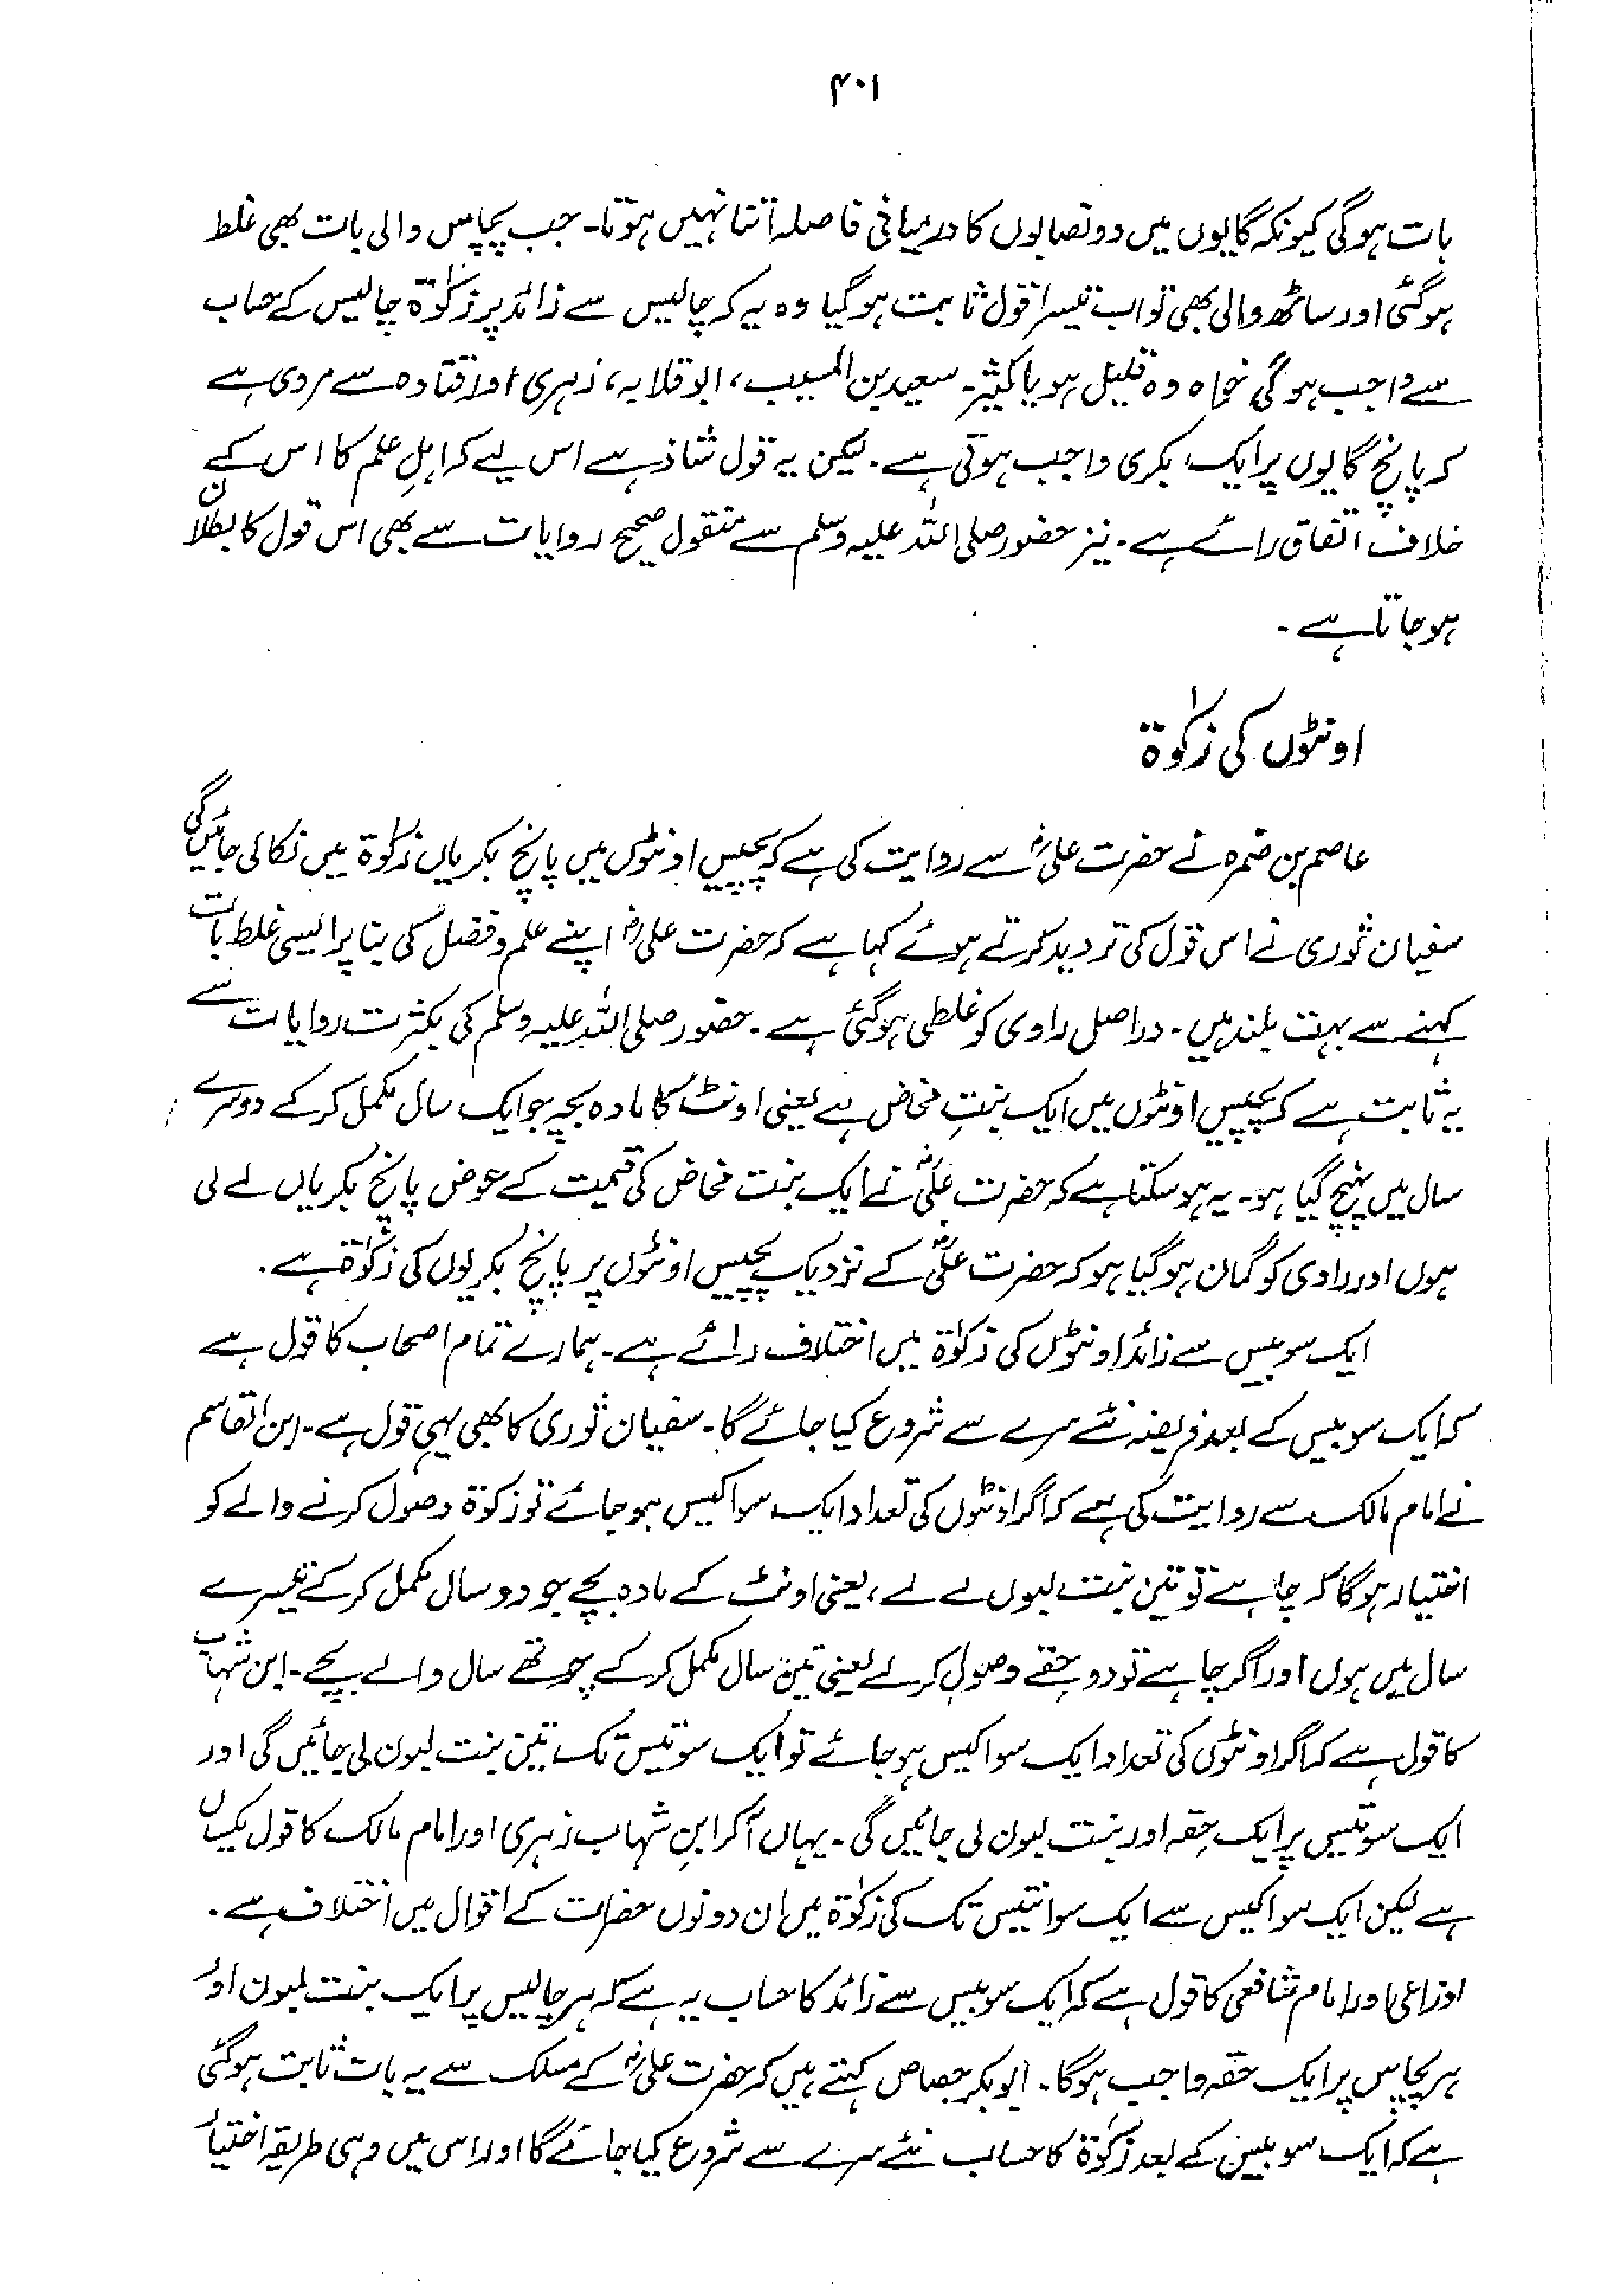 ۴۰۱
بات ہوگی کیونکہ گایوں میں دو نصابوں کا درمیانی فاصلہ اتنا نہیں ہوتا۔ جب پچاس والی بات بھی غلط
ہوگئی اور ساٹھ والی بھی تو اب تیسرا قول ثابت ہوگیا وہ یہ کہ چالیس سے زائد پر زکوٰۃ چالیس کے حساب
سے واجب ہوگی خواہ وہ قلیل ہو یا کثیر۔ سعید بن المسیب، ابو قلابہ، زہری اور قتادہ سے مروی ہے
کہ پانچ گایوں پر ایک بکری واجب ہوتی ہے۔ لیکن یہ قول شاذ ہے اس لیے کہ اہلِ علم کا اس کے
خلاف اتفاق رائے ہے۔ نیز حضور صلی اللہ علیہ وسلم سے منقول صحیح روایات سے بھی اس قول کا بطلان
ہو جاتا ہے۔
اونٹوں کی زکوٰۃ
عاصم بن ضمرہ نے حضرت علیؓ سے روایت کی ہے کہ پچیس اونٹوں میں پانچ بکریاں زکوٰۃ میں نکالی جائیں گی
سفیان ثوری نے اس قول کی تردید کرتے ہوئے کہا ہے کہ حضرت علیؓ اپنے علم و فضل کی بنا پر ایسی غلط بات
کہنے سے بہت بلند ہیں۔ دراصل راوی کو غلطی ہوگئی ہے۔ حضور صلی اللہ علیہ وسلم کی بکثرت روایات سے
یہ ثابت ہے کہ پچیس اونٹوں میں ایک بنتِ مخاض ہے یعنی اونٹ کا مادہ بچہ جو ایک سال مکمل کر کے دوسرے
سال میں پہنچ گیا ہو۔ یہ ہو سکتا ہے کہ حضرت علیؓ نے ایک بنت مخاض کی قیمت کے عوض پانچ بکریاں لے لی
ہوں اور راوی کو گمان ہوگیا ہو کہ حضرت علیؓ کے نزدیک پچیس اونٹوں پر پانچ بکریوں کی زکوٰۃ ہے۔
ایک سو بیس سے زائد اونٹوں کی زکوٰۃ میں اختلاف رائے ہے۔ ہمارے تمام اصحاب کا قول ہے
کہ ایک سو بیس کے بعد فریضہ نئے سرے سے شروع کیا جائے گا۔ سفیان ثوری کا بھی یہی قول ہے۔ ابن القاسم
نے امام مالک سے روایت کی ہے کہ اگر اونٹوں کی تعداد ایک سو اکیس ہو جائے تو زکوٰۃ وصول کرنے والے کو
اختیار ہوگا کہ چاہے تو تین بنت لبوں لے لے، یعنی اونٹ کے مادہ بچے جو دو سال مکمل کر کے تیسرے
سال میں ہوں اور اگر چاہے تو دو حقے وصول کر لے یعنی تین سال مکمل کر کے چوتھے سال والے بچے۔ ابن شہاب
کا قول ہے کہ اگر اونٹوں کی تعداد ایک سو اکیس ہو جائے تو ایک سو تیس تک تین بنت لبون لی جائیں گی اور
ایک سو تیس پر ایک حِقہ اور بنت لبون لی جائیں گی۔ یہاں آ کر ابنِ شہاب زہری اور امام مالک کا قول یکساں
ہے لیکن ایک سو اکیس سے ایک سو انتیس تک کی زکوٰۃ میں ان دونوں حضرات کے اقوال میں اختلاف ہے۔
اوزاعی اور امام شافعی کا قول ہے کہ ایک سو بیس سے زائد کا حساب یہ ہے کہ ہر چالیس پر ایک بنت لبون اور
ہر پچاس پر ایک حقہ واجب ہوگا۔ ابوبکر جصاص کہتے ہیں کہ حضرت علیؓ کے مسلک سے یہ بات ثابت ہوگئی
ہے کہ ایک سو بیس کے بعد زکوٰۃ کا حساب نئے سرے سے شروع کیا جائے گا اور اس میں وہی طریقہ اختیار